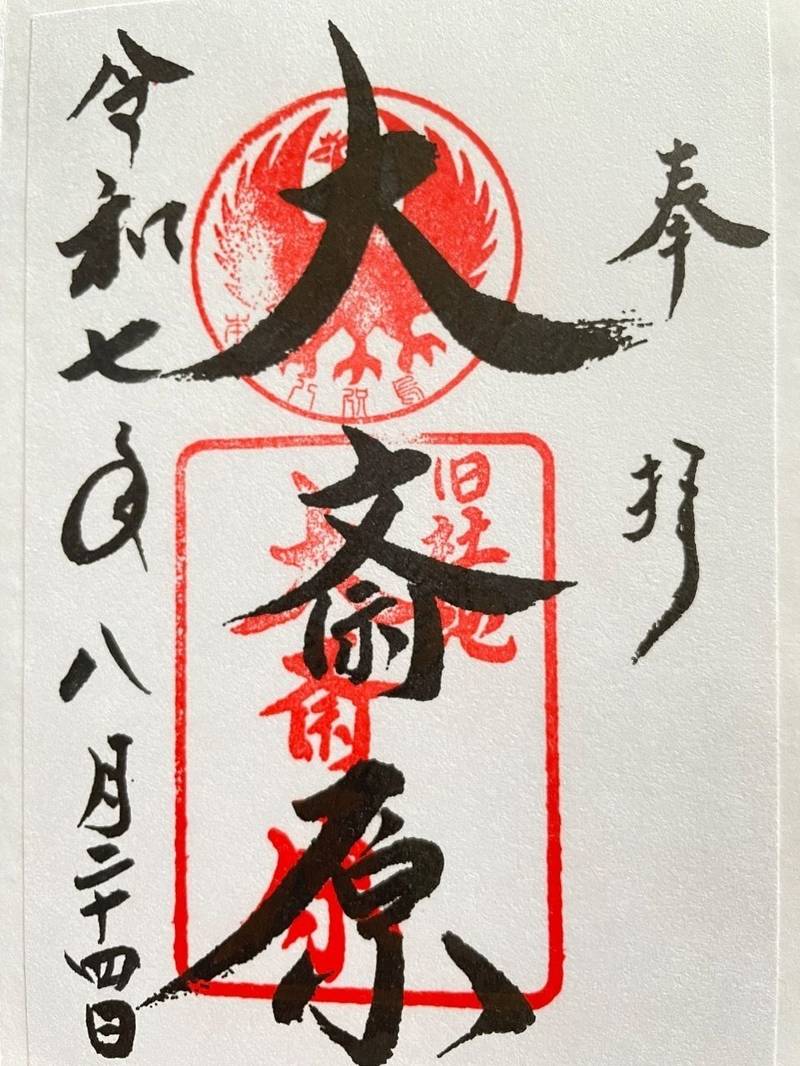 奉拝
大斎原
旧社地
令和七年八月二十四日